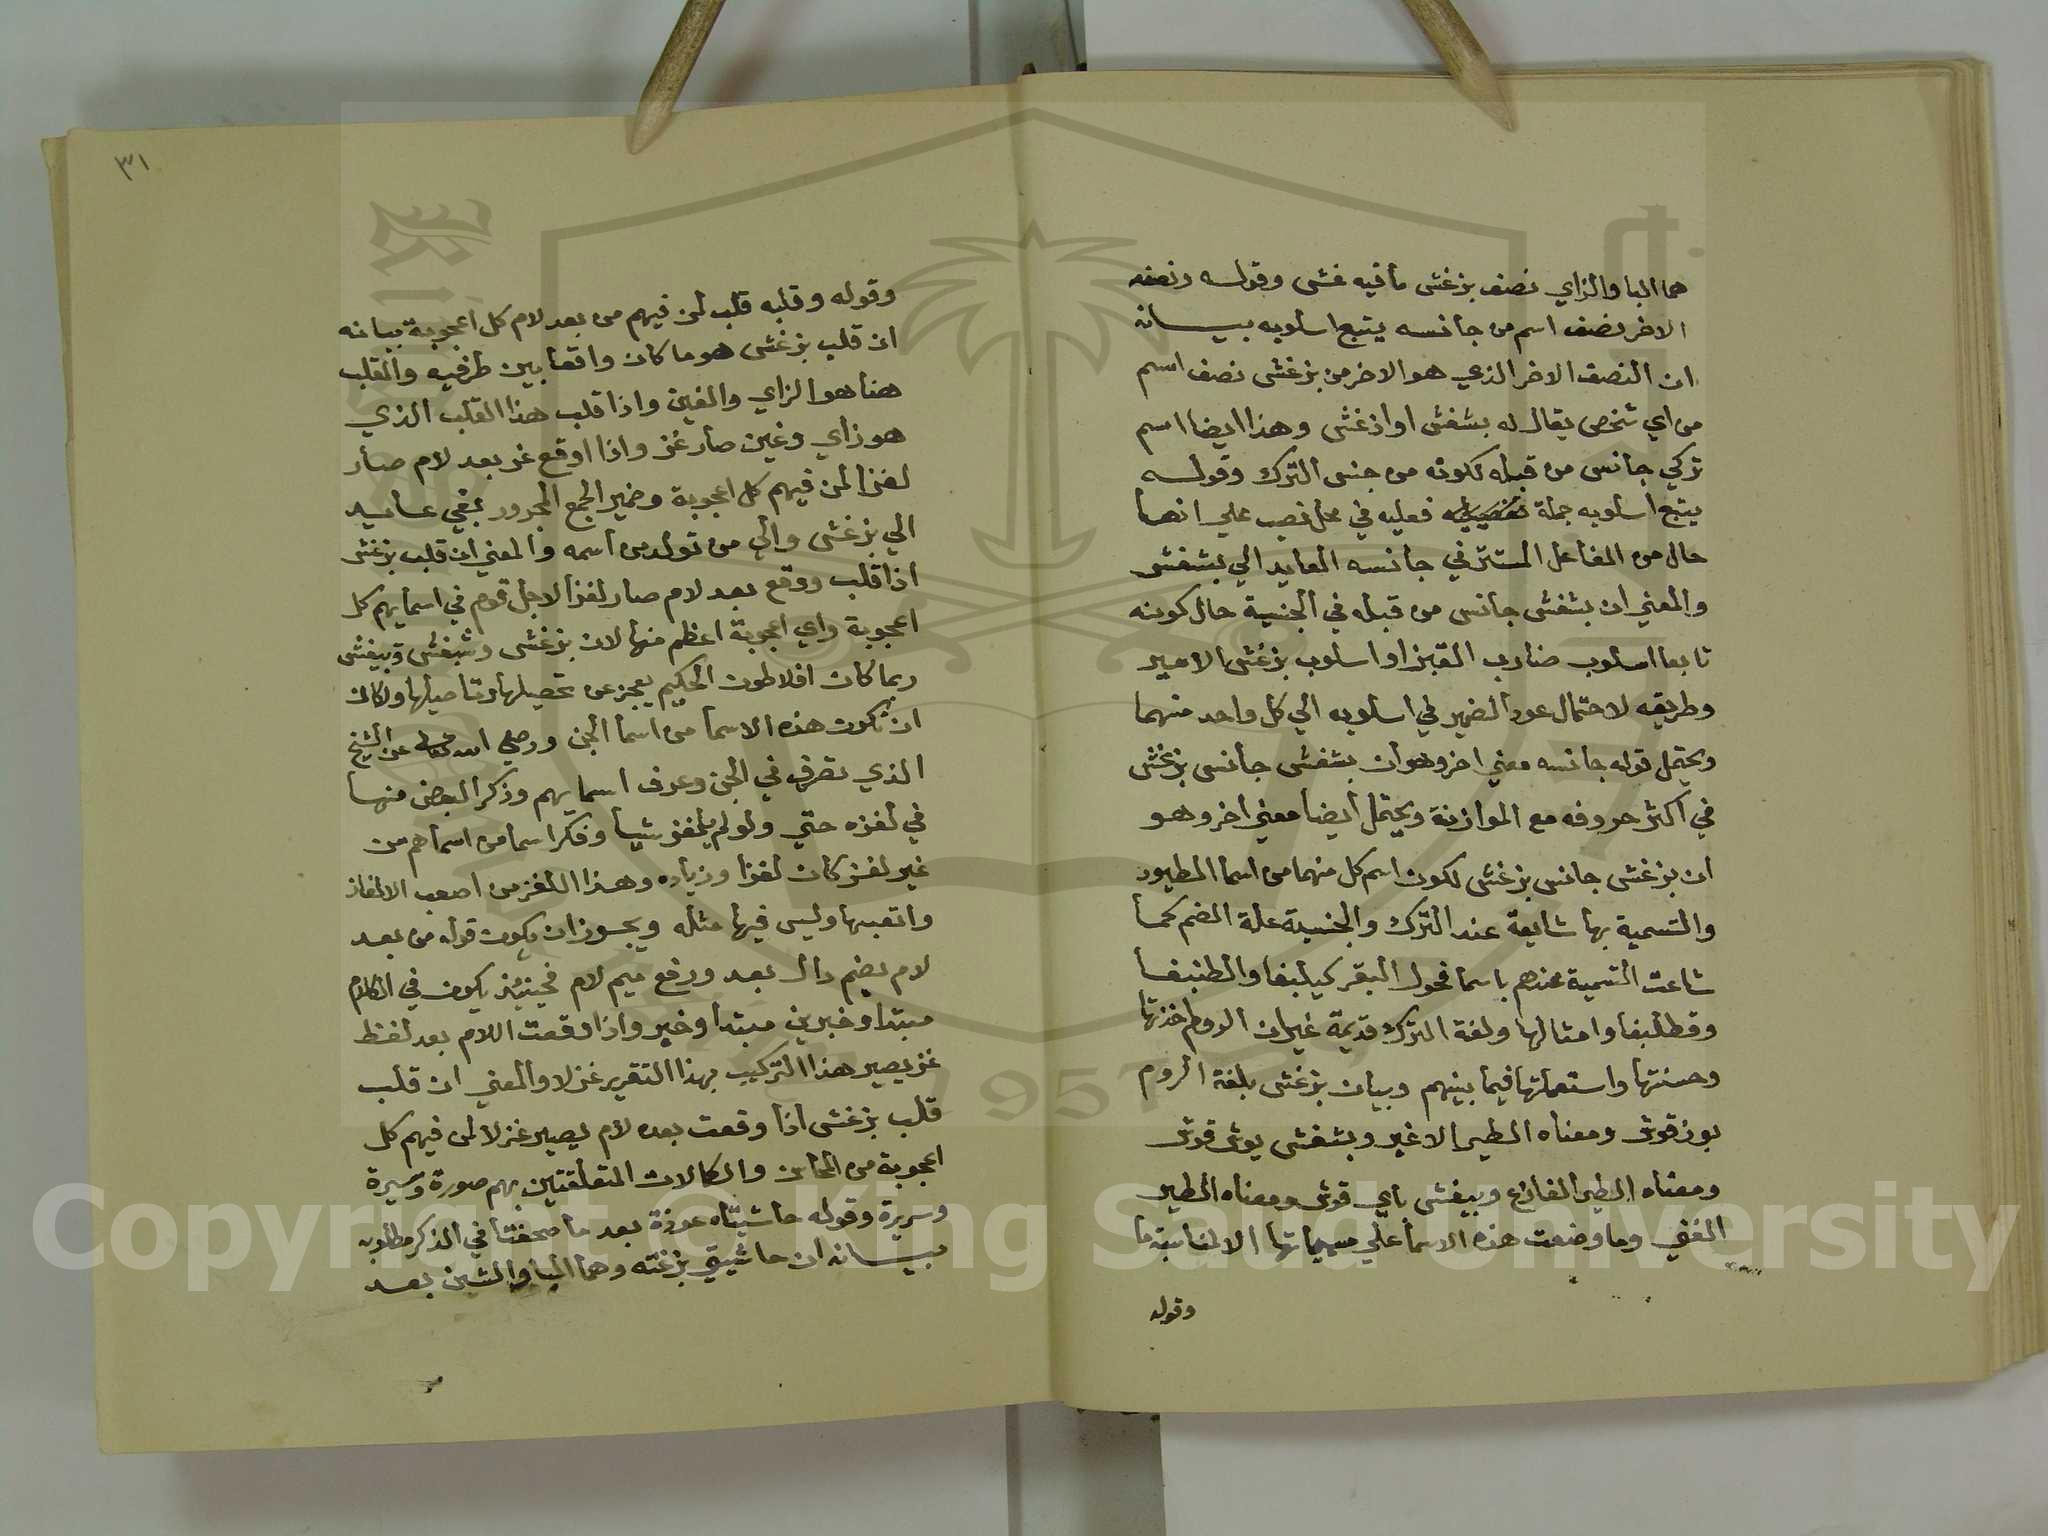 هما البا والزاي نصف بزغش ما فيه غشى وقولـه ونصفه
الاخر نصف اسم من جانسه يتبع اسلوبه بيـــانه
ان النصف الاخر الذي هو الاخر من بزغشى نصف اسم
من اي شخص يقال له بشغش او ازغشى وهذا ايضا اسم
تركي جانس من قبله لكونه من جنس الترك وقولـه
يتبع اسلوبه جملة فعليه في محل نصب على انها
حال من الفاعل المستتر في جانسه العايد الي بشغش
والمعني ان بشغش جانس من قبله في الجنسية حال كونه
تابعا اسلوب ضارب القبز او اسلوب بزغش الامير
وطريقه لاحتمال عود الضمير في اسلوبه الي كل واحد منهما
ويحتمل قوله جانسه معني اخر وهو ان بشغش جانس بزغش
في اكثر حروفه مع الموازنة ويحتمل ايضا معني اخر وهو
ان بزغش جانس بزغش لكون اسم كل منهما من اسما الطيور
والتسمية بها شايعة عند الترك والجنسية علة الضم كما
شاعت التسمية عندهم باسما فحول البقر كيلبغا والطنبغا
وقطلبغا وامثالها ولغة الترك قديمة غير ان الروم اخذتها
وحسنتها واستعملتها فيما بينهم وبيان بزغش بلغة الروم
بوز قوش ومعناه الطير الاغبر وبشغش بوش قوش
ومعناه الطير الفارغ وبيغشى باي قوش ومعناه الطير
الغني وما وضعت هذه الاسما علي مسمياتها الا لمناسبة ما
وقوله
٣١
وقوله وقلبه قلب لمن فيهم من بعد لام كل اعجوبة بيانه
ان قلب بزغشى هو ما كان واقعا بين طرفيه والقلب
هنا هو الزاي والغين واذا قلب هذا القلب الذي
هو زاي وغين صار غز واذا اوقع غز بعد لام صار
لغزا لمن فيهم كل اعجوبة وضمير الجمع المجرور بفي عايد
الي بزغشى والي من تولد من اسمه والمعني ان قلب بزغش
اذا قلب ووقع بعد لام صار لغزا لاجل قوم في اسمايهم كل
اعجوبة واي اعجوبة اعظم منها لان بزغشى وشبغشى وبيغشى
ربما كان افلاطون الحكيم يعجز عن تحصيلها وتاصيلها ولكان
ان تكون هذه الاسما من اسما الجن ورضي الله تعالى عن الشيخ
الذي تصرف في الجن وعرف اسمايهم وذكر البعض منها
في لغزه حتي ولو لم يلغز شيا وذكر اسما من اسماهم من
غير لغز كان لغزا وزياده وهذا اللغز من اصعب الالغاز
واتعبها وليس فيها مثله ويجـوز ان يكون قوله من بعـد
لام بضم دال بعد ورفع ميم لام فحينئذ يكون في الكلام
مبتدا وخبرين مبتدا وخبر واذا وقعت اللام بعد لفظ
غز يصير هذا التركيب بهذا التقرير غزلا والمعني ان قلب
قلب بزغشى اذا وقعت بعده لام يصير غزلا لمن فيهم كل
اعجوبة من المحاسن والكمالات المتعلقتين بهم صورة وسيرة
وسريرة وقوله حاشيتاه عوذة بعد ما صحفتا في الذكر مطلوبه
بيـــانه ان حاشيتي بزغته وهما البا والشين بعـد